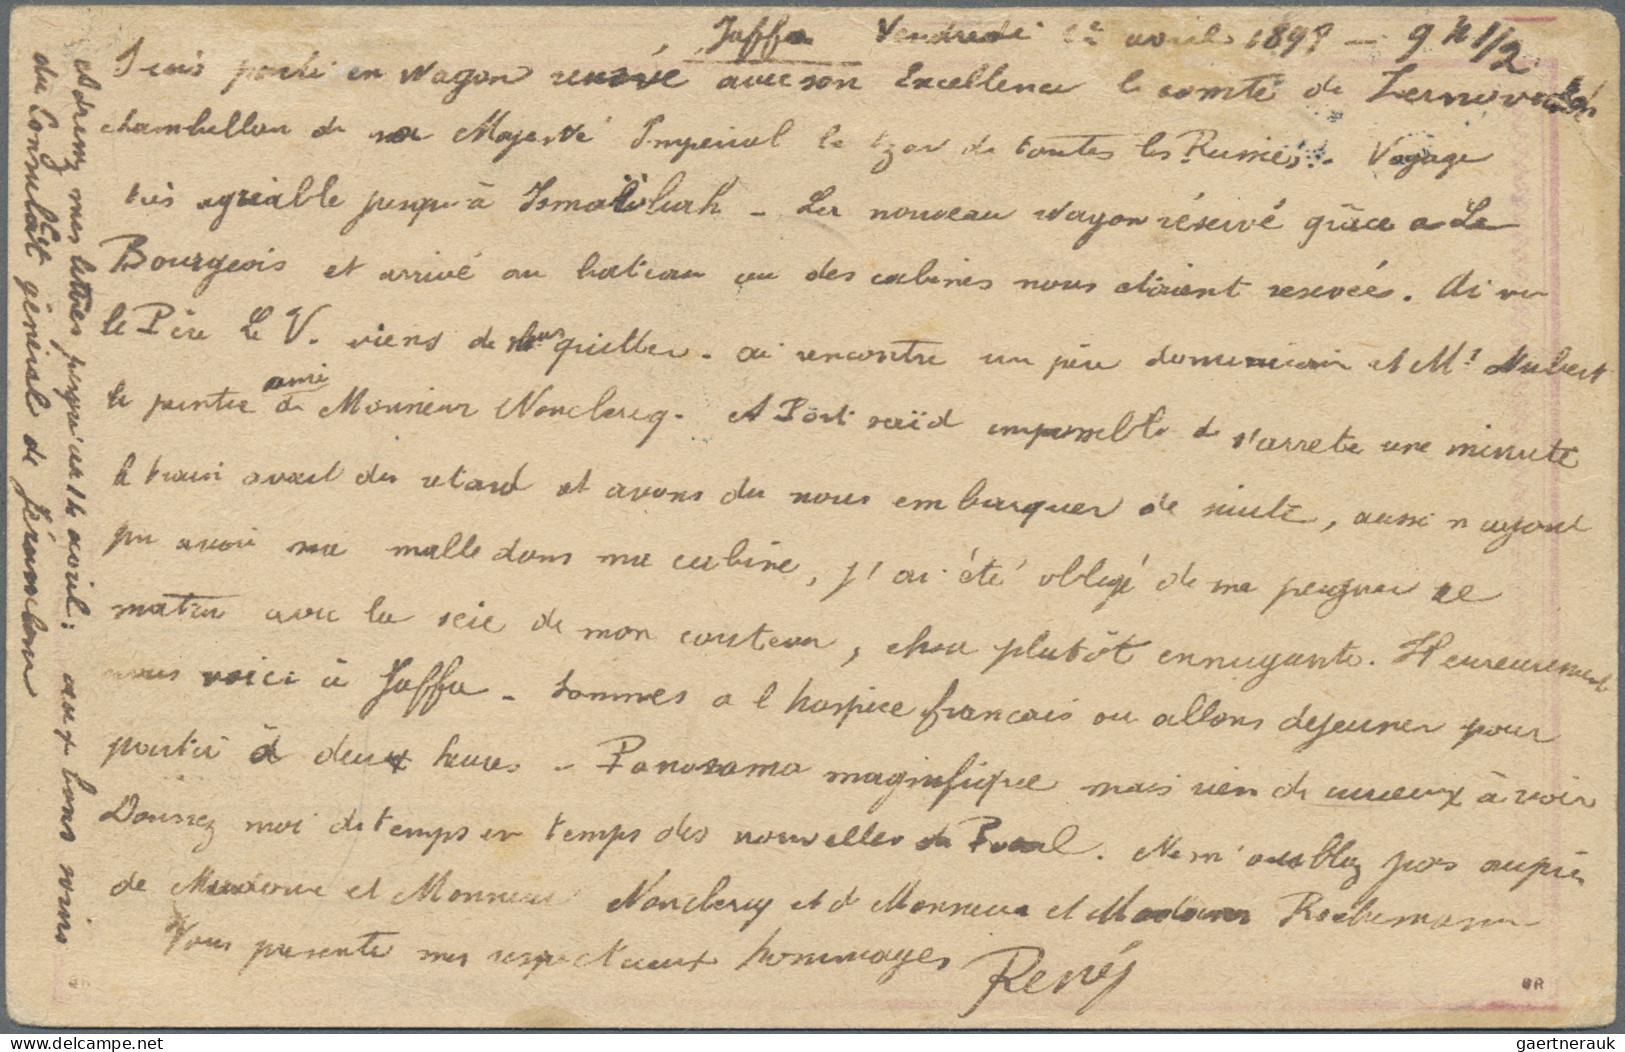 Jaffa Vendredi 1er avril 1898 - 9 h 1/2
Suis parti en wagon réservé avec son Excellence le comte de
chambellan de sa Majesté Impérial le tzar de toutes les Russies. Voyage
très agréable jusqu'à Ismaïliah - La nouveau wagon réservé grâce a Le
Bourgeois et arrivé au bateau ou des cabines nous étaient resevées. Ai vu
le Père Le V. viens de le quitter. ai rencontré un père dominicain et Mr Hubert
le peintre ami de Monsieur Nonclercq. A Port saïd impossible de s'arreter une minute
le train avait du retard et avons du nous embarquer de suite, aussi n'ayant
pu avoir ma malle dans ma cabine, j'ai été obligé de me peigner ce
matin avec la scie de mon couteau, chose plutôt ennuyante. Heureusement
nous voici à Jaffa - Sommes a l'hospice francais ou allons dejeuner pour
partir à deux heures - Panorama magnifique mais rien de curieux à voir
Donnez moi de temps en temps des nouvelles de Paul. Ne m'oubliez pas auprès
de Madame et Monsieur Nonclercq et de Monsieur et Madame
Vous presente mes respectueux hommages
René
Adressez mes lettres jusqu'au 14 avril: aux bons soins
du Cons Consulat général de Jérusalem
gaertnerauk